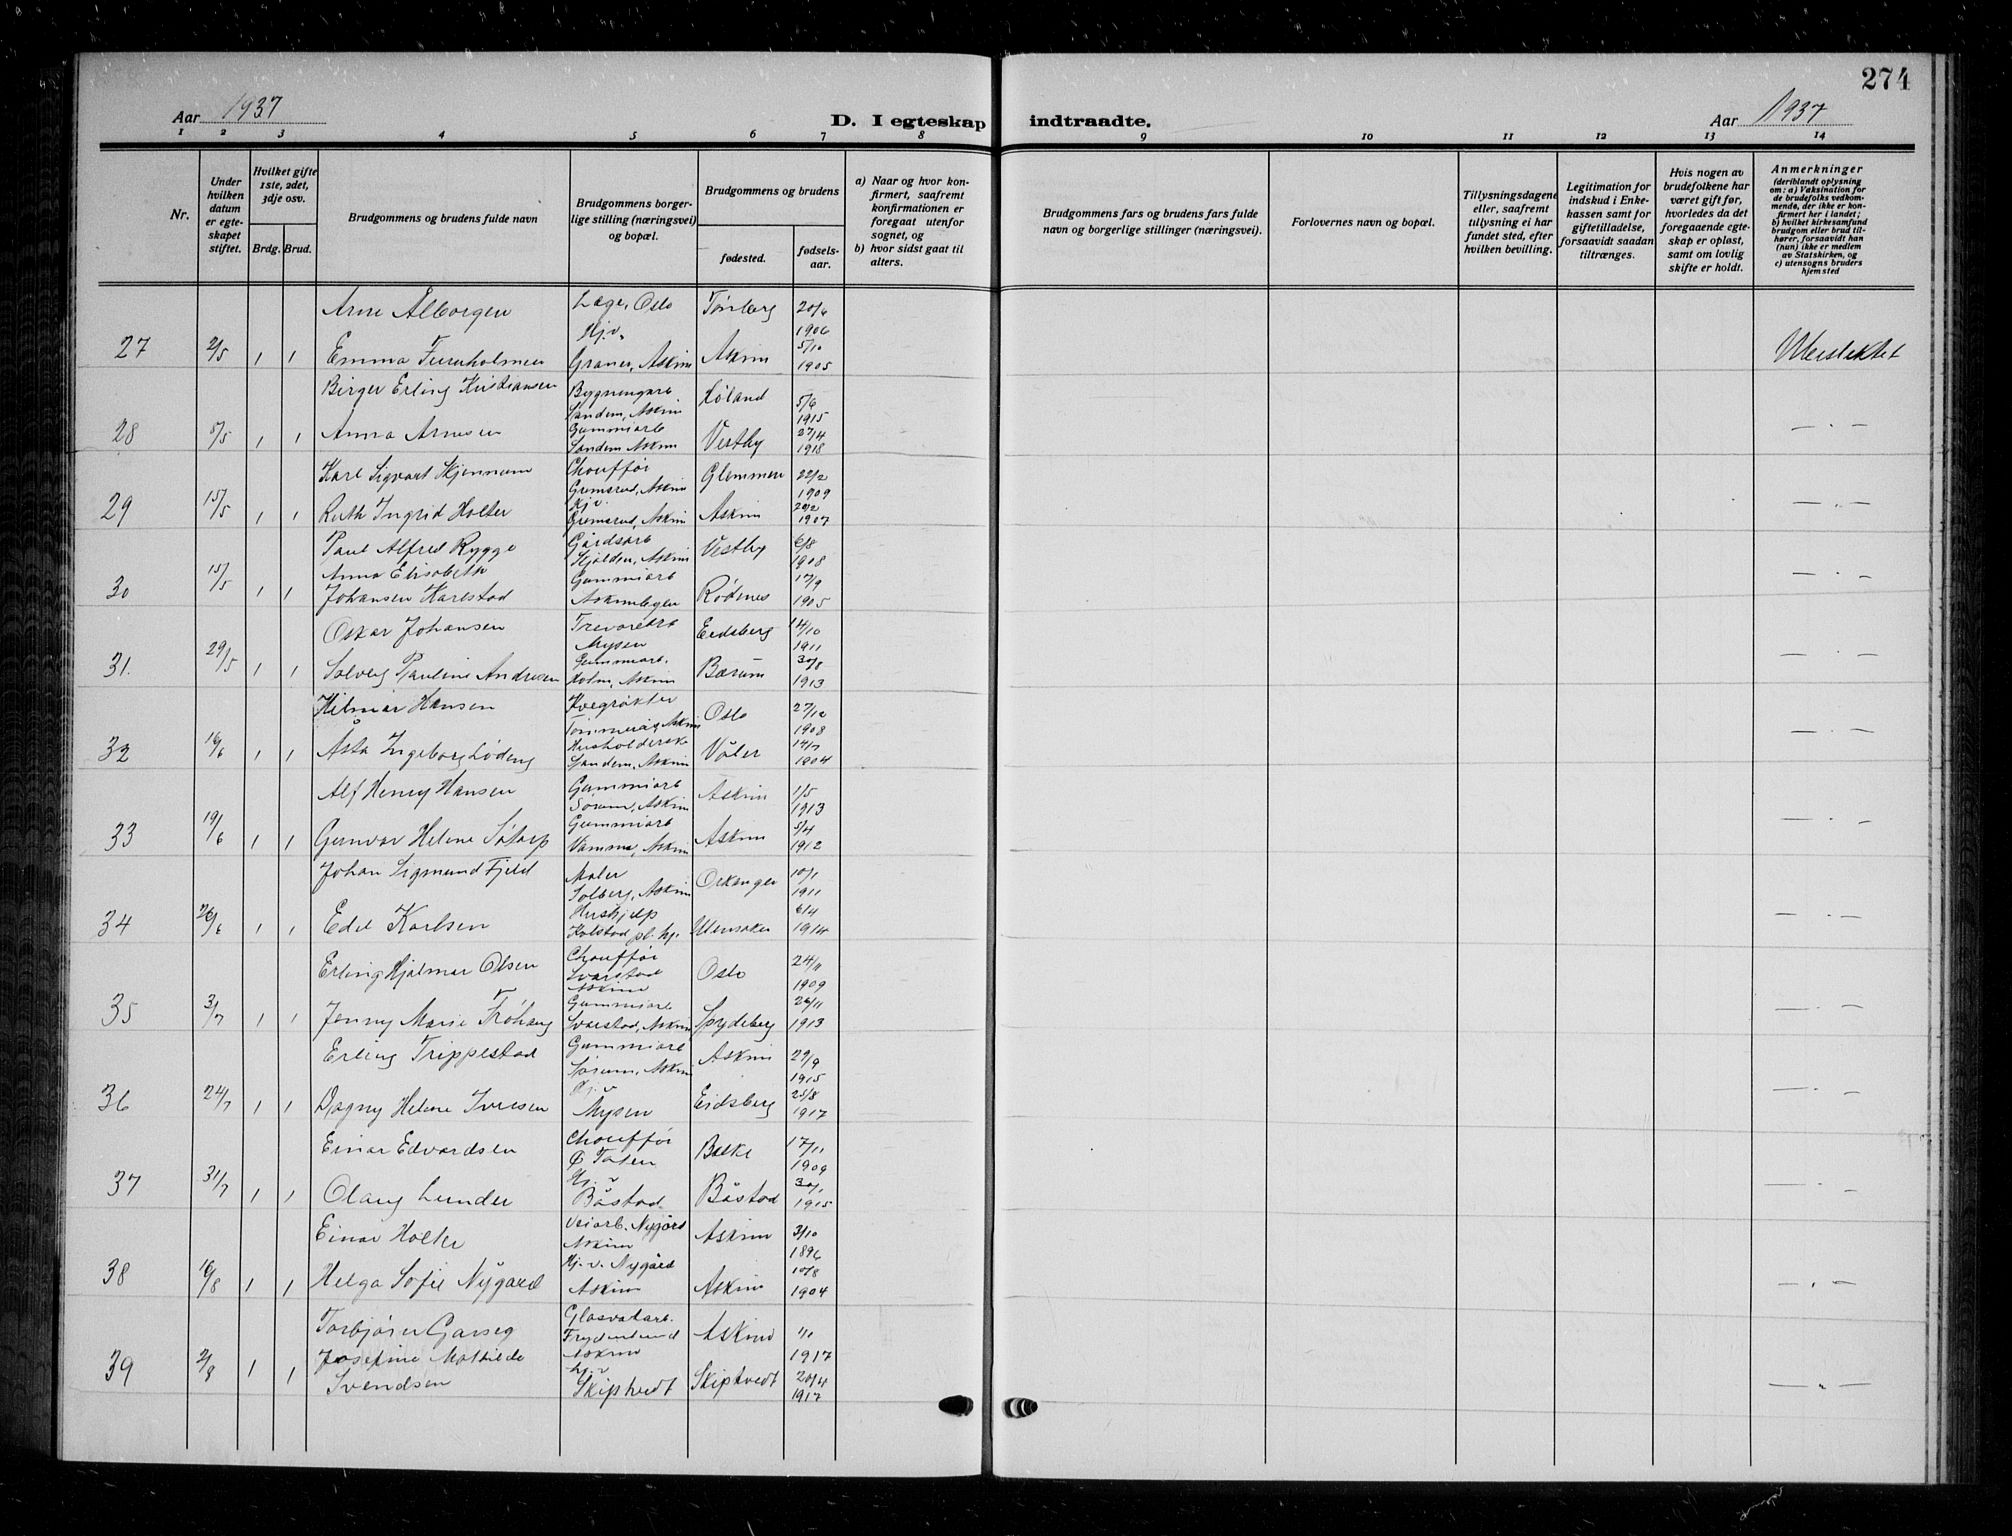 274
Aar 1937
D. I egteskap indtraadte.
Aar 1937
1 2 3 4 5 6 7 8 9 10 11 12 13 14
Nr.
Under hvilken datum er egteskapet stiftet.
Hvilket gifte 1ste, 2det, 3dje osv.
Brdg. Brud.
Brudgommens og brudens fulde navn
Brudgommens borgerlige stilling (næringsvei) og bopæl.
Brudgommens og brudens
fødested.
fødselsaar.
a) Naar og hvor konfirmert, saafremt konfirmationen er foregaat utenfor sognet, og
b) hvor sidst gaat til alters.
Brudgommens fars og brudens fars fulde navn og borgerlige stillinger (næringsvei).
Forlovernes navn og bopæl.
Tillysningsdagene eller, saafremt tillysning ei har fundet sted, efter hvilken bevilling.
Legitimation for indskud i Enkekassen samt for giftetilladelse, forsaavidt saadan tiltrænges.
Hvis nogen av brudefolkene har været gift før, hvorledes da det foregaaende egteskap er opløst, samt om lovlig skifte er holdt.
Anmerkninger
(deriblandt oplysning om: a) Vaksination for de brudefolks vedkommende, der ikke er konfirmert her i landet; b) hvilket kirkesamfund brudgom eller brud tilhører, forsaavidt han (hun) ikke er medlem av Statskirken, og c) utensogns bruders hjemsted
Arne Alborgen Læge, Oslo Tønsberg 20/4 1906
27 2/5 1 1 Emma Furuholmen Hj.v. Graner, Askim Askim 5/10 1905
Birger Erling Kristiansen Bygningsarb Sandem, Askim Høland 5/6 1915
28 5/5 1 1 Anna Arnesen Gummiarb Sandem Askim Vestby 27/4 1918 — " —
Karl Sigvart Skjennum Chauffør Grimsrud, Askim Glemmen 22/2 1909
29 15/5 1 1 Ruth Ingrid Holter Hj.v. Grimsrud, Askim Askim 20/2 1907 — " —
Paul Alfred Rygge Gårdsarb Skjolden, Askim Vestby 6/8 1908
30 15/5 1 1 Anna Elisabeth Johansen Harestad Gummiarb Askimbyen Rødenes 17/9 1905 — " —
Oskar Johansen Trevarearb Mysen Eidsberg 14/10 1911
31. 29/5 1 1 Solveig Pauline Andresen Gummiarb. Holm, Askim Bærum 30/8 1913 — " —
Hilmar Hansen Kvegrøkter Tømmerås Askim Oslo 27/12 1908
32 16/6 1 1 Åsta Ingeborg Lødeng Husholderske Sandem, Askim Våler 14/7 1904 — " —
Alf Henry Hansen Gummiarb Sørum, Askim Askim 1/5 1913
33 19/6 1 1 Gunvor Helene Søtorp Gummiarb Vamma, Askim Askim 5/4 1912 — " —
Johan Sigmund Fjeld Maler Solberg, Askim Orkanger 10/1 1911
34 26/6 1 1 Edel Karlsen Hushjelp Kolstad pl. hj. Ullensaker 6/4 1914 — " —
Erling Hjalmar Olsen Chauffør Svarstad Askim Oslo 24/11 1909
35 3/7 1 1 Jenny Marie Frøhaug Gummiarb Svarstad, Askim Spydeberg 26/11 1913 — " —
Erling Trippestad Gummiarb Sørum, Askim Askim 29/9 1915
36 24/7 1 1 Dagny Helene Iversen Hj. v Mysen Eidsberg 25/8 1917 — " —
Einar Edvardsen Chauffør Ø Toten Balke 17/11 1909
37 31/7 1 1 Olaug Lunder Hj. v Båstad Båstad 30/1 1915 — " —
Einar Holter Veiarb. Nygård Askim Askim 3/10 1896
38 16/8 1 1 Helga Sofie Nygaard Hj. v. Nygård Askim Askim 10/8 1904 — " —
Torbjørn Garseg Glasvatarb. Frydenlund Askim Askim 1/10 1917
39 2/8 1 1 Josefine Mathilde Svendsen hj. v Skiptvedt Skiptvedt 20/4 1917 — " —